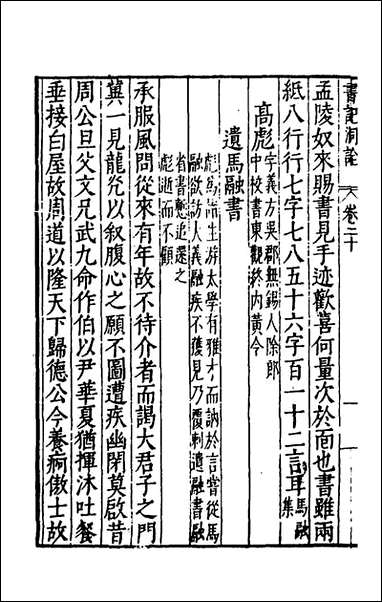 書記洞詮 卷二十 一
孟陵奴來賜書見手迹歡喜何量次於面也書雖兩
紙八行行七字七八五十六字百一十二言耳馬融集
高彪字義方吳郡無錫人除郎中校書東觀終內黃令
遺馬融書
彪爲諸生游太學有雅才而訥於言嘗從馬
融欲訪大義融疾不獲見乃覆刺遺融書融
省書慙追還之
彪逝而不顧
承服風問從來有年故不待介者而謁大君子之門
兾一見龍光以叙腹心之願不圖遭疾幽閉莫啟昔
周公旦父文兄武九命作伯以尹華夏猶揮沐吐餐
垂接白屋故周道以隆天下歸德公今養痾傲士故